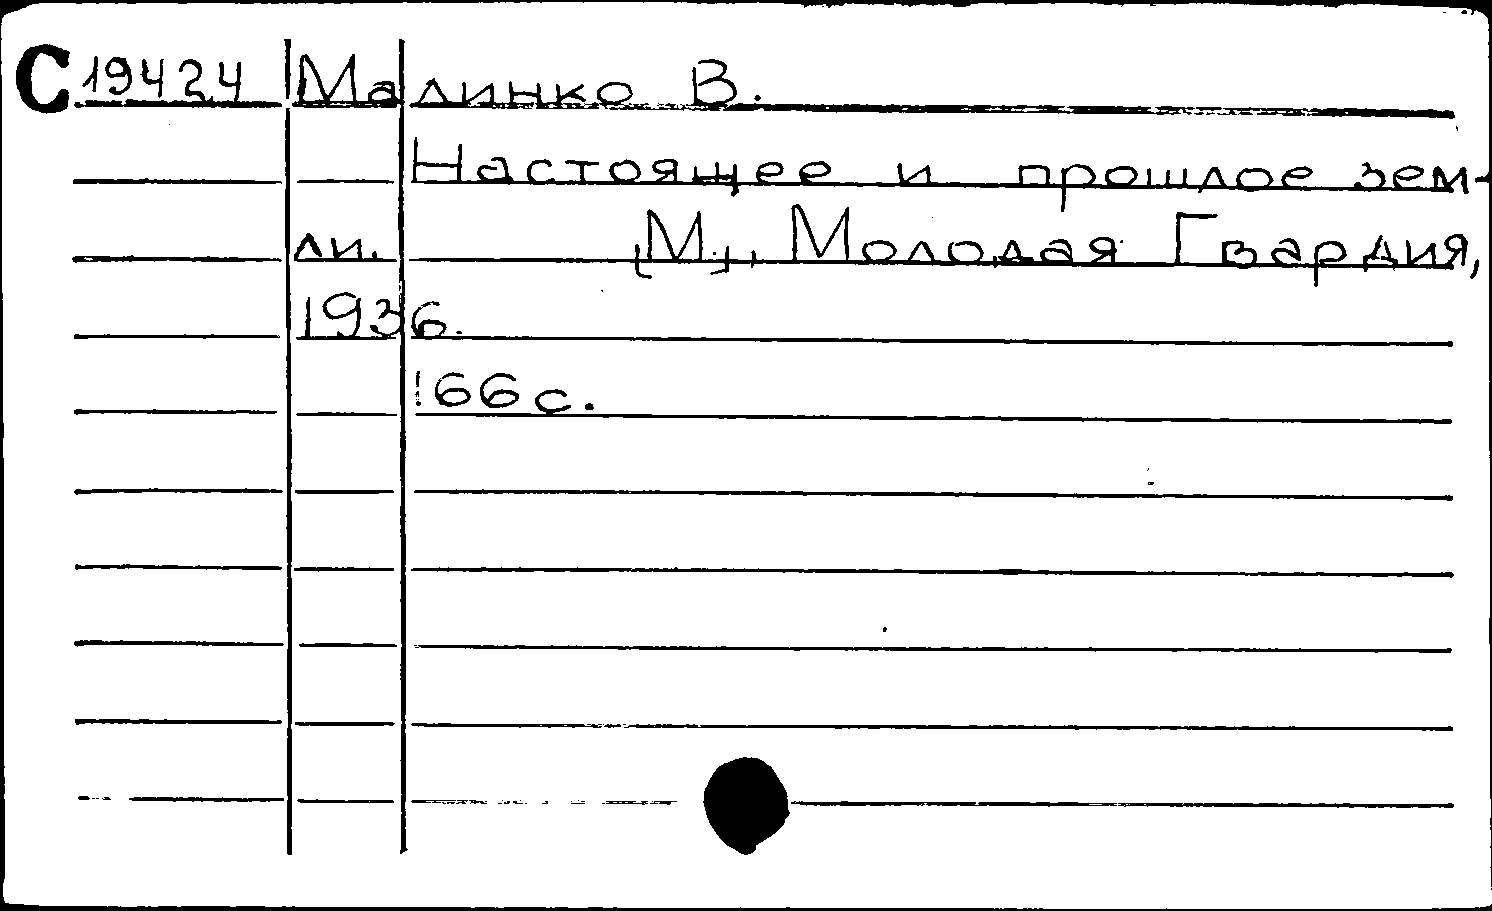 С 19424 Малинко В.
Настоящее и прошлое зем-
ли. [М.], Молодая Гвардия,
1936.
166 с.